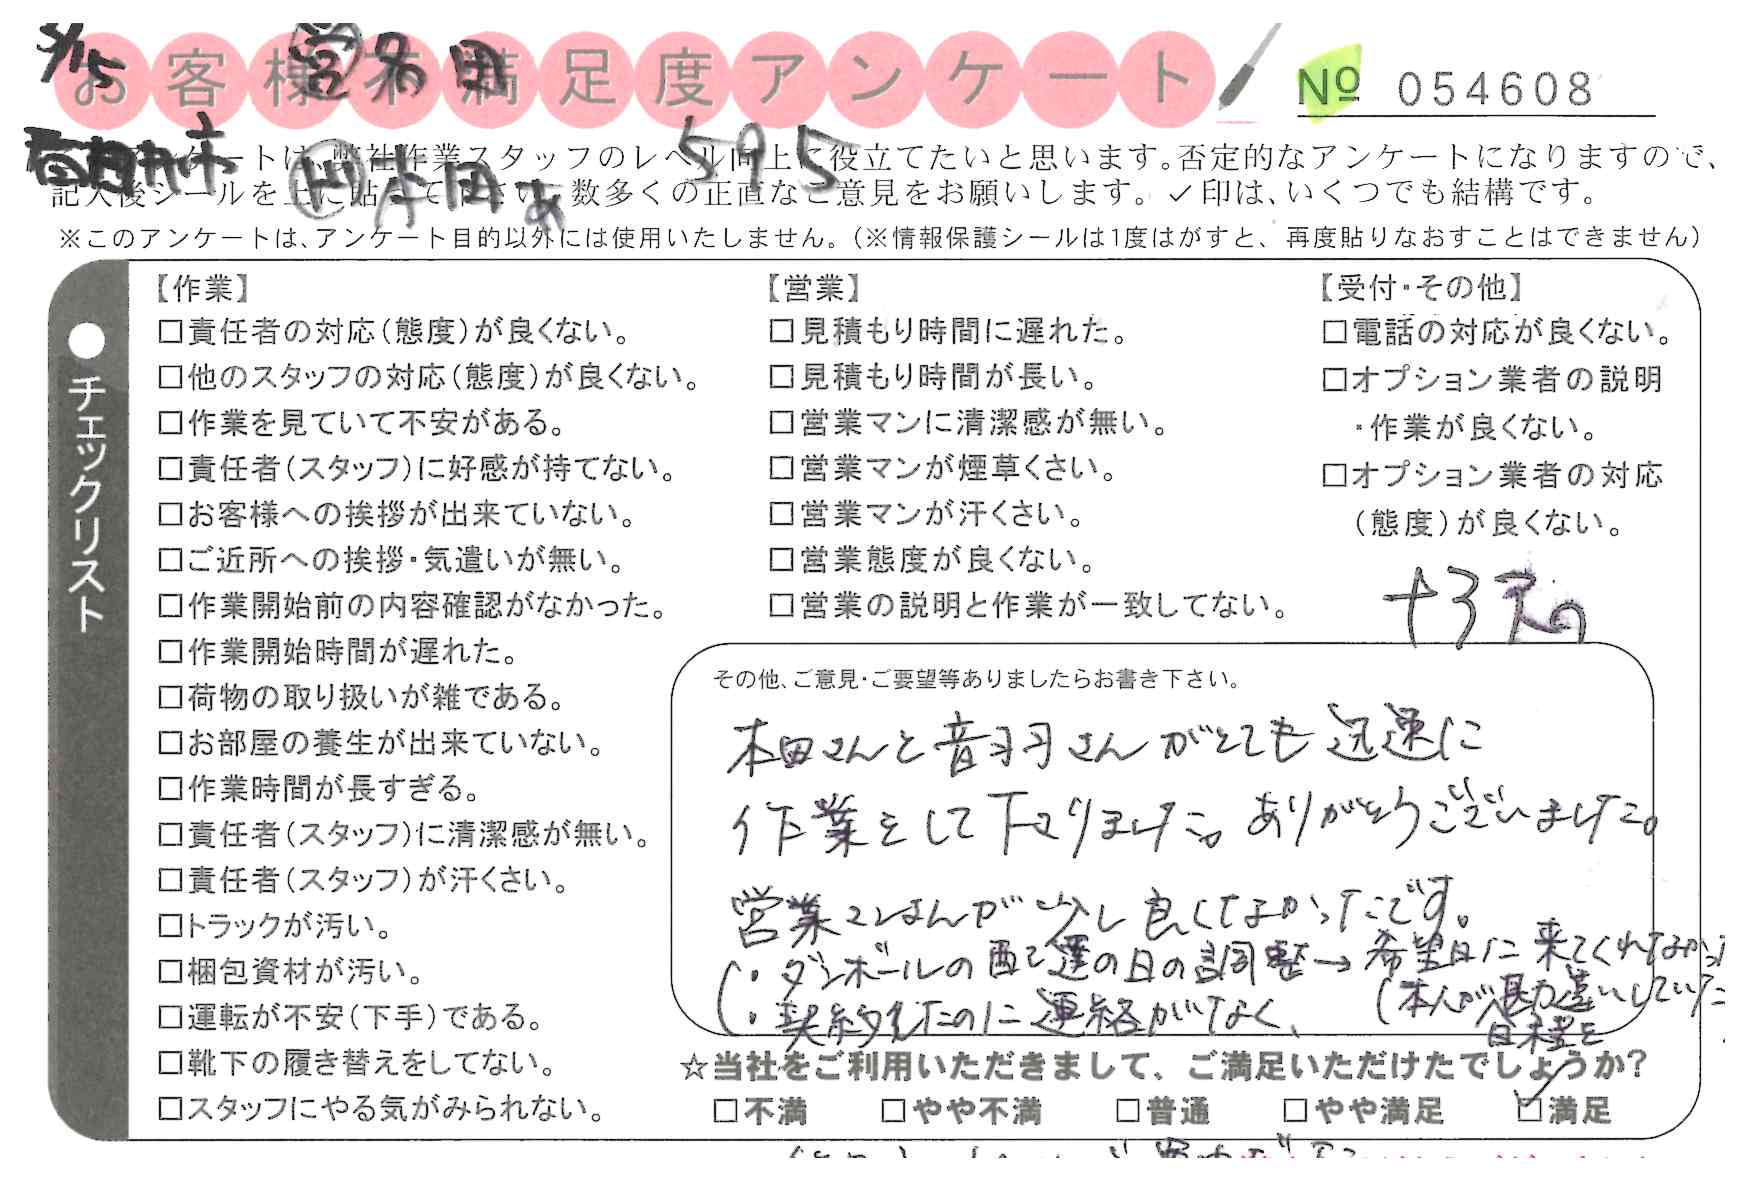 5/15
お客様不満足度アンケート
営 名田
№ 054608
高知市
595
アンケートは、弊社作業スタッフのレベル向上に役立てたいと思います。否定的なアンケートになりますので、
記入後シールを上に貼って下さい。数多くの正直なご意見をお願いします。✓印は、いくつでも結構です。
※このアンケートは、アンケート目的以外には使用いたしません。(※情報保護シールは1度はがすと、再度貼りなおすことはできません)
●チェックリスト
【作業】
□責任者の対応(態度)が良くない。
□他のスタッフの対応(態度)が良くない。
□作業を見ていて不安がある。
□責任者(スタッフ)に好感が持てない。
□お客様への挨拶が出来ていない。
□ご近所への挨拶・気遣いが無い。
□作業開始前の内容確認がなかった。
□作業開始時間が遅れた。
□荷物の取り扱いが雑である。
□お部屋の養生が出来ていない。
□作業時間が長すぎる。
□責任者(スタッフ)に清潔感が無い。
□責任者(スタッフ)が汗くさい。
□トラックが汚い。
□梱包資材が汚い。
□運転が不安(下手)である。
□靴下の履き替えをしてない。
□スタッフにやる気がみられない。
【営業】
□見積もり時間に遅れた。
□見積もり時間が長い。
□営業マンに清潔感が無い。
□営業マンが煙草くさい。
□営業マンが汗くさい。
□営業態度が良くない。
□営業の説明と作業が一致してない。
【受付・その他】
□電話の対応が良くない。
□オプション業者の説明
・作業が良くない。
□オプション業者の対応
(態度)が良くない。
その他、ご意見・ご要望等ありましたらお書き下さい。
本田さんと音羽さんがとても迅速に
作業をして下さりました。ありがとうございました。
営業マンさんが少し良くなかったです。
・ダンボールの配達の日の調整→希望日に来てくれなかっ
(本人が日程を勘違いしていた
・契約したのに連絡がなく、
☆当社をご利用いただきまして、ご満足いただけたでしょうか?
□不満 □やや不満 □普通 □やや満足 ☑満足